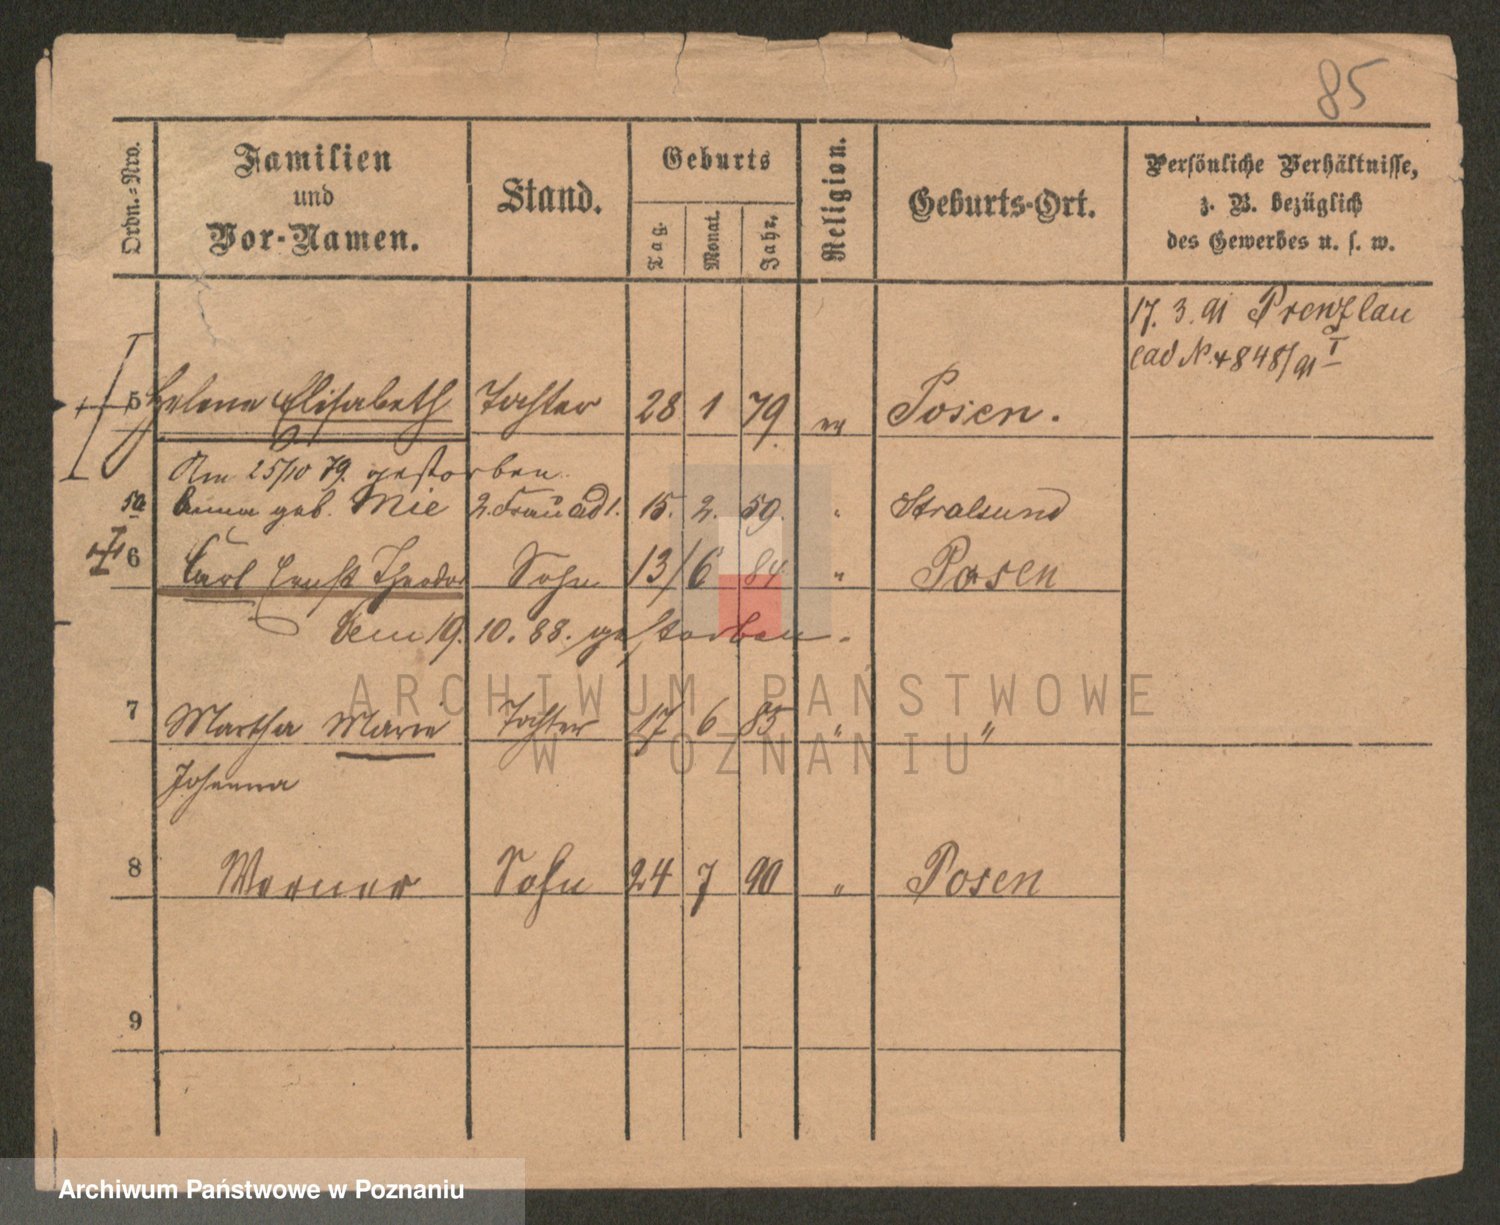 85
Ordn.-Nro.
Familien
und
Vor-Namen.
Stand.
Geburts
Tag.
Monat.
Jahr.
Religion.
Geburts-Ort.
Persönliche Verhältnisse,
z. B. bezüglich
des Gewerbes u. s. w.
17. 3. 91 Prenzlau
5 Helene Elisabeth Tochter 28 1 79 ev Posen.
Am 25/10 79. gestorben.
5a Anna geb. Mie 2. Frau ad 1. 15. 2. 59. " Stralsund
6 Carl Ernst Theodor Sohn 13/6 84 " Posen
Dem 19. 10. 88. gestorben.
7 Martha Marie Tochter 17 6 85 " "
Johanna
8 Werner Sohn 24 7 90 " Posen
9
ARCHIWUM PAŃSTWOWE
W POZNANIU
Archiwum Państwowe w Poznaniu